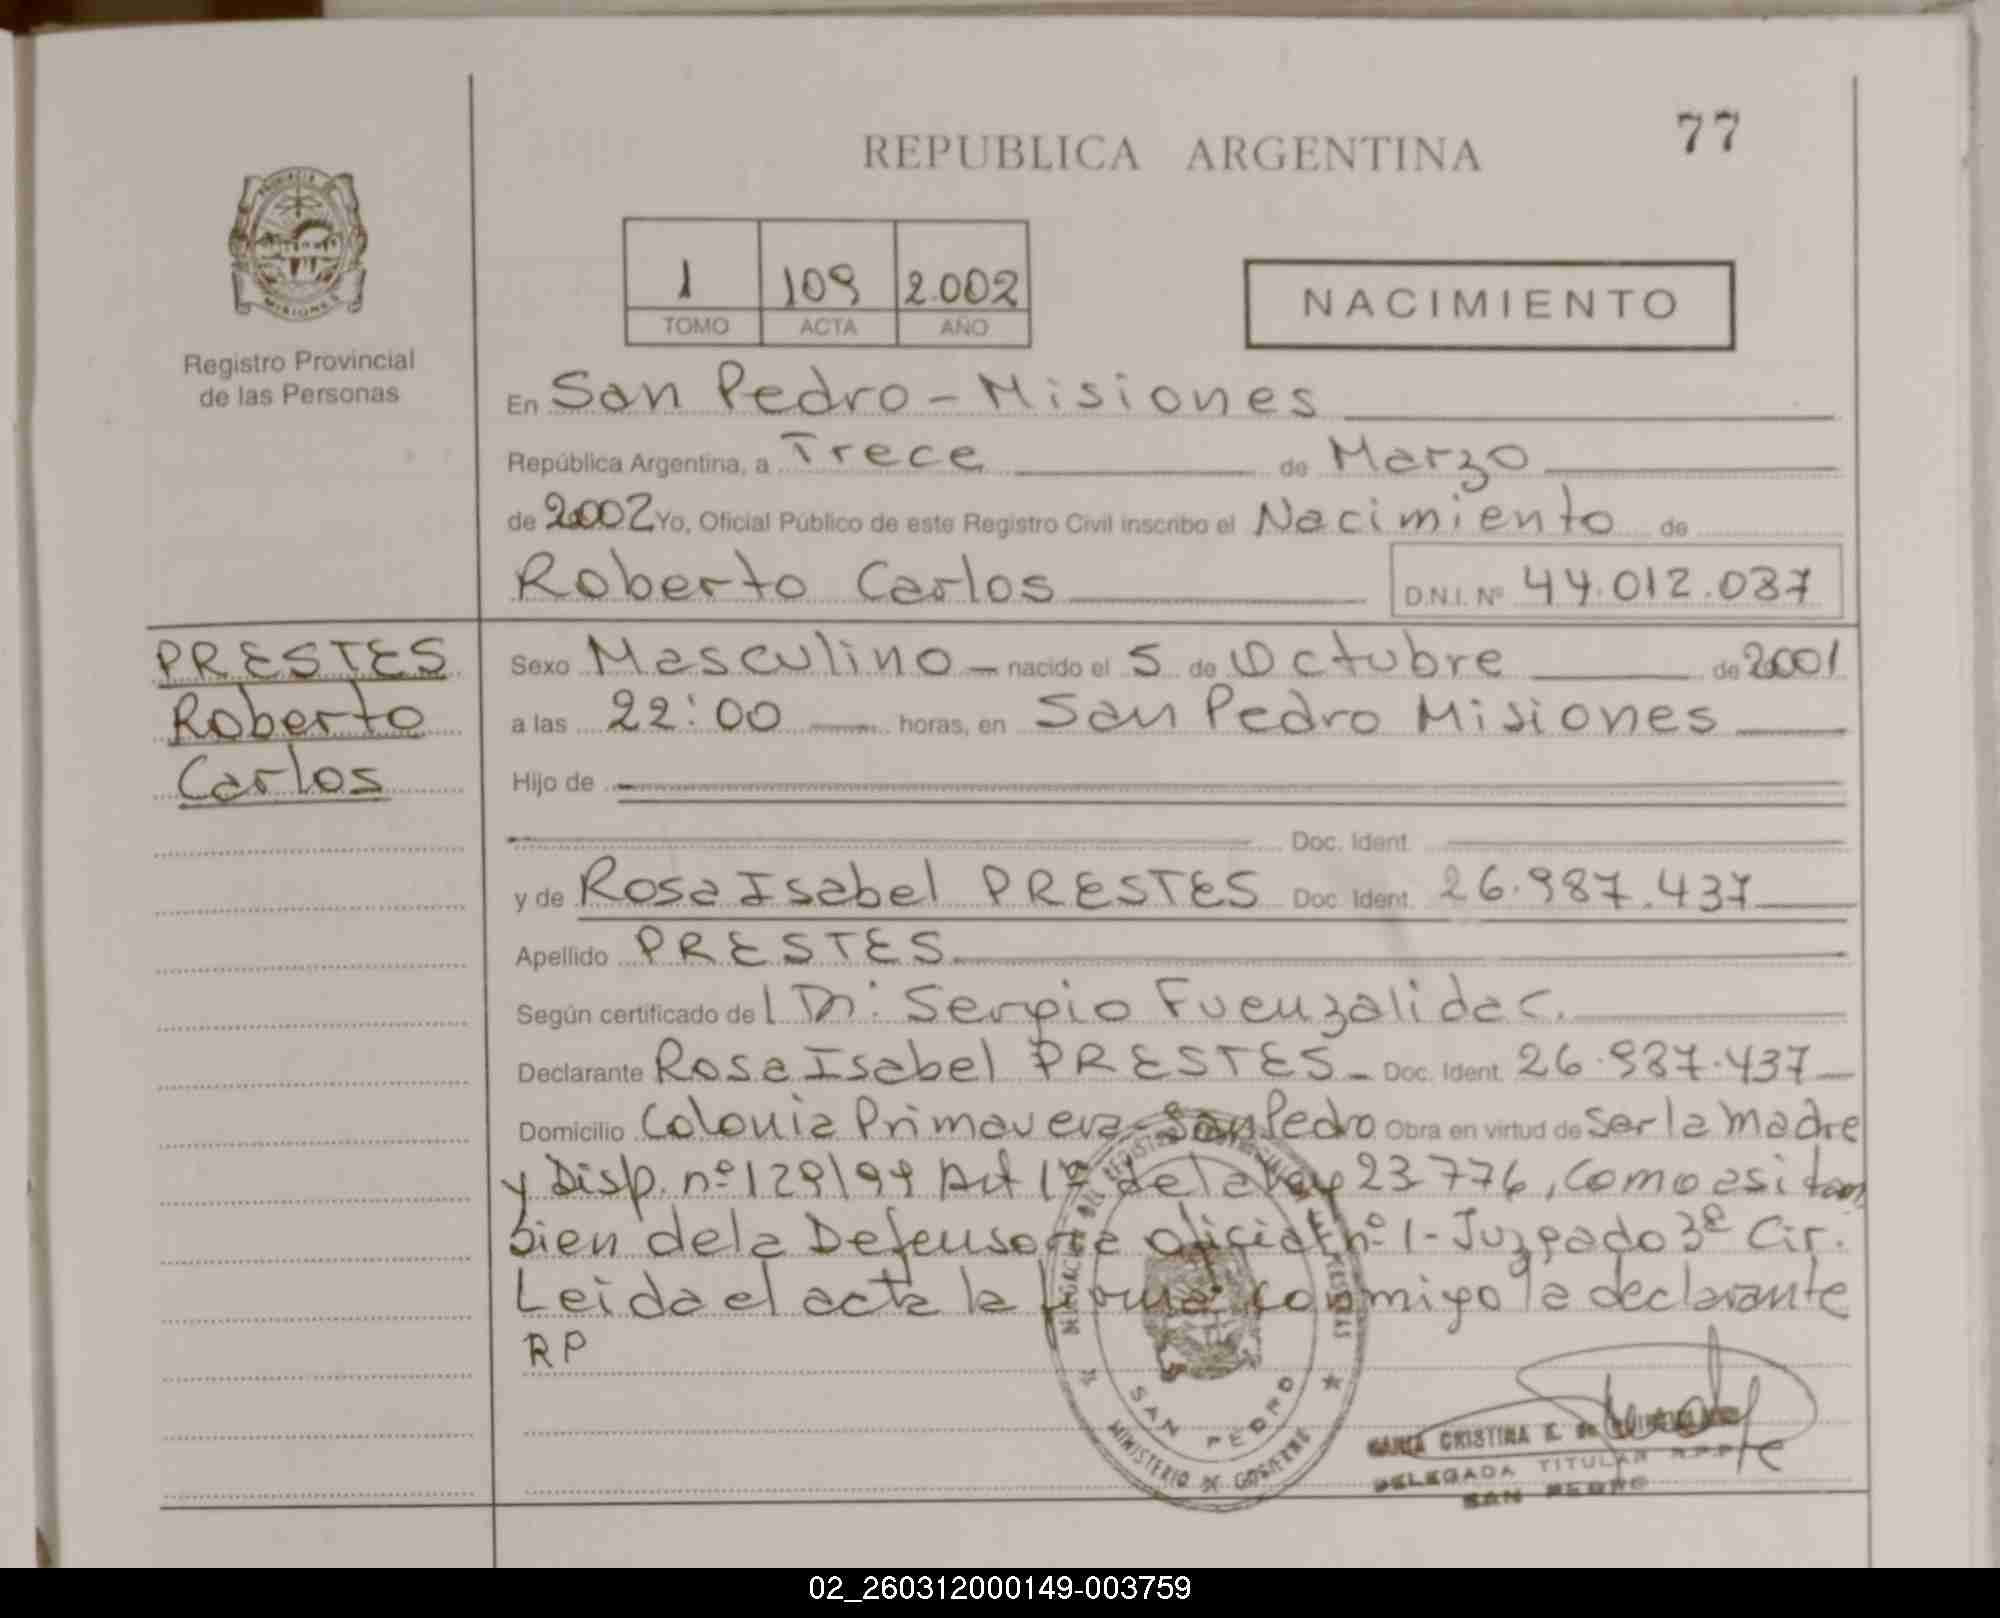 77
REPUBLICA ARGENTINA
PROVINCIA DE
MISIONES
Registro Provincial
de las Personas
1 109 2.002
TOMO ACTA AÑO
NACIMIENTO
En San Pedro - Misiones
República Argentina, a Trece de Marzo
de 2.002 Yo, Oficial Público de este Registro Civil inscribo el Nacimiento de
Roberto Carlos D.N.I. Nº 44.012.087
PRESTES
Roberto
Carlos
Sexo Masculino - nacido el 5 de Octubre de 2.001
a las 22:00 horas, en San Pedro Misiones
Hijo de
Doc. Ident.
y de Rosa Isabel PRESTES Doc. Ident. 26.987.437
Apellido PRESTES
Según certificado de l Dr: Sergio Fuenzalida C.
Declarante Rosa Isabel PRESTES - Doc. Ident. 26.987.437
Domicilio Colonia Primavera - San Pedro Obra en virtud de ser la madre
y Disp. nº 129/99 Art 1º de la ley 23776, como asi tam
bien de la Defensoria oficial nº 1 - Juzgado 3ª Cir.
Leida el acta la firma conmigo la declarante
RP
DELEGACION DEL REGISTRO PROVINCIAL DE LAS PERSONAS
SAN PEDRO
MINISTERIO DE GOBIERNO
MARIA CRISTINA E. de
DELEGADA TITULAR R.P.P.
SAN PEDRO
02_260312000149-003759